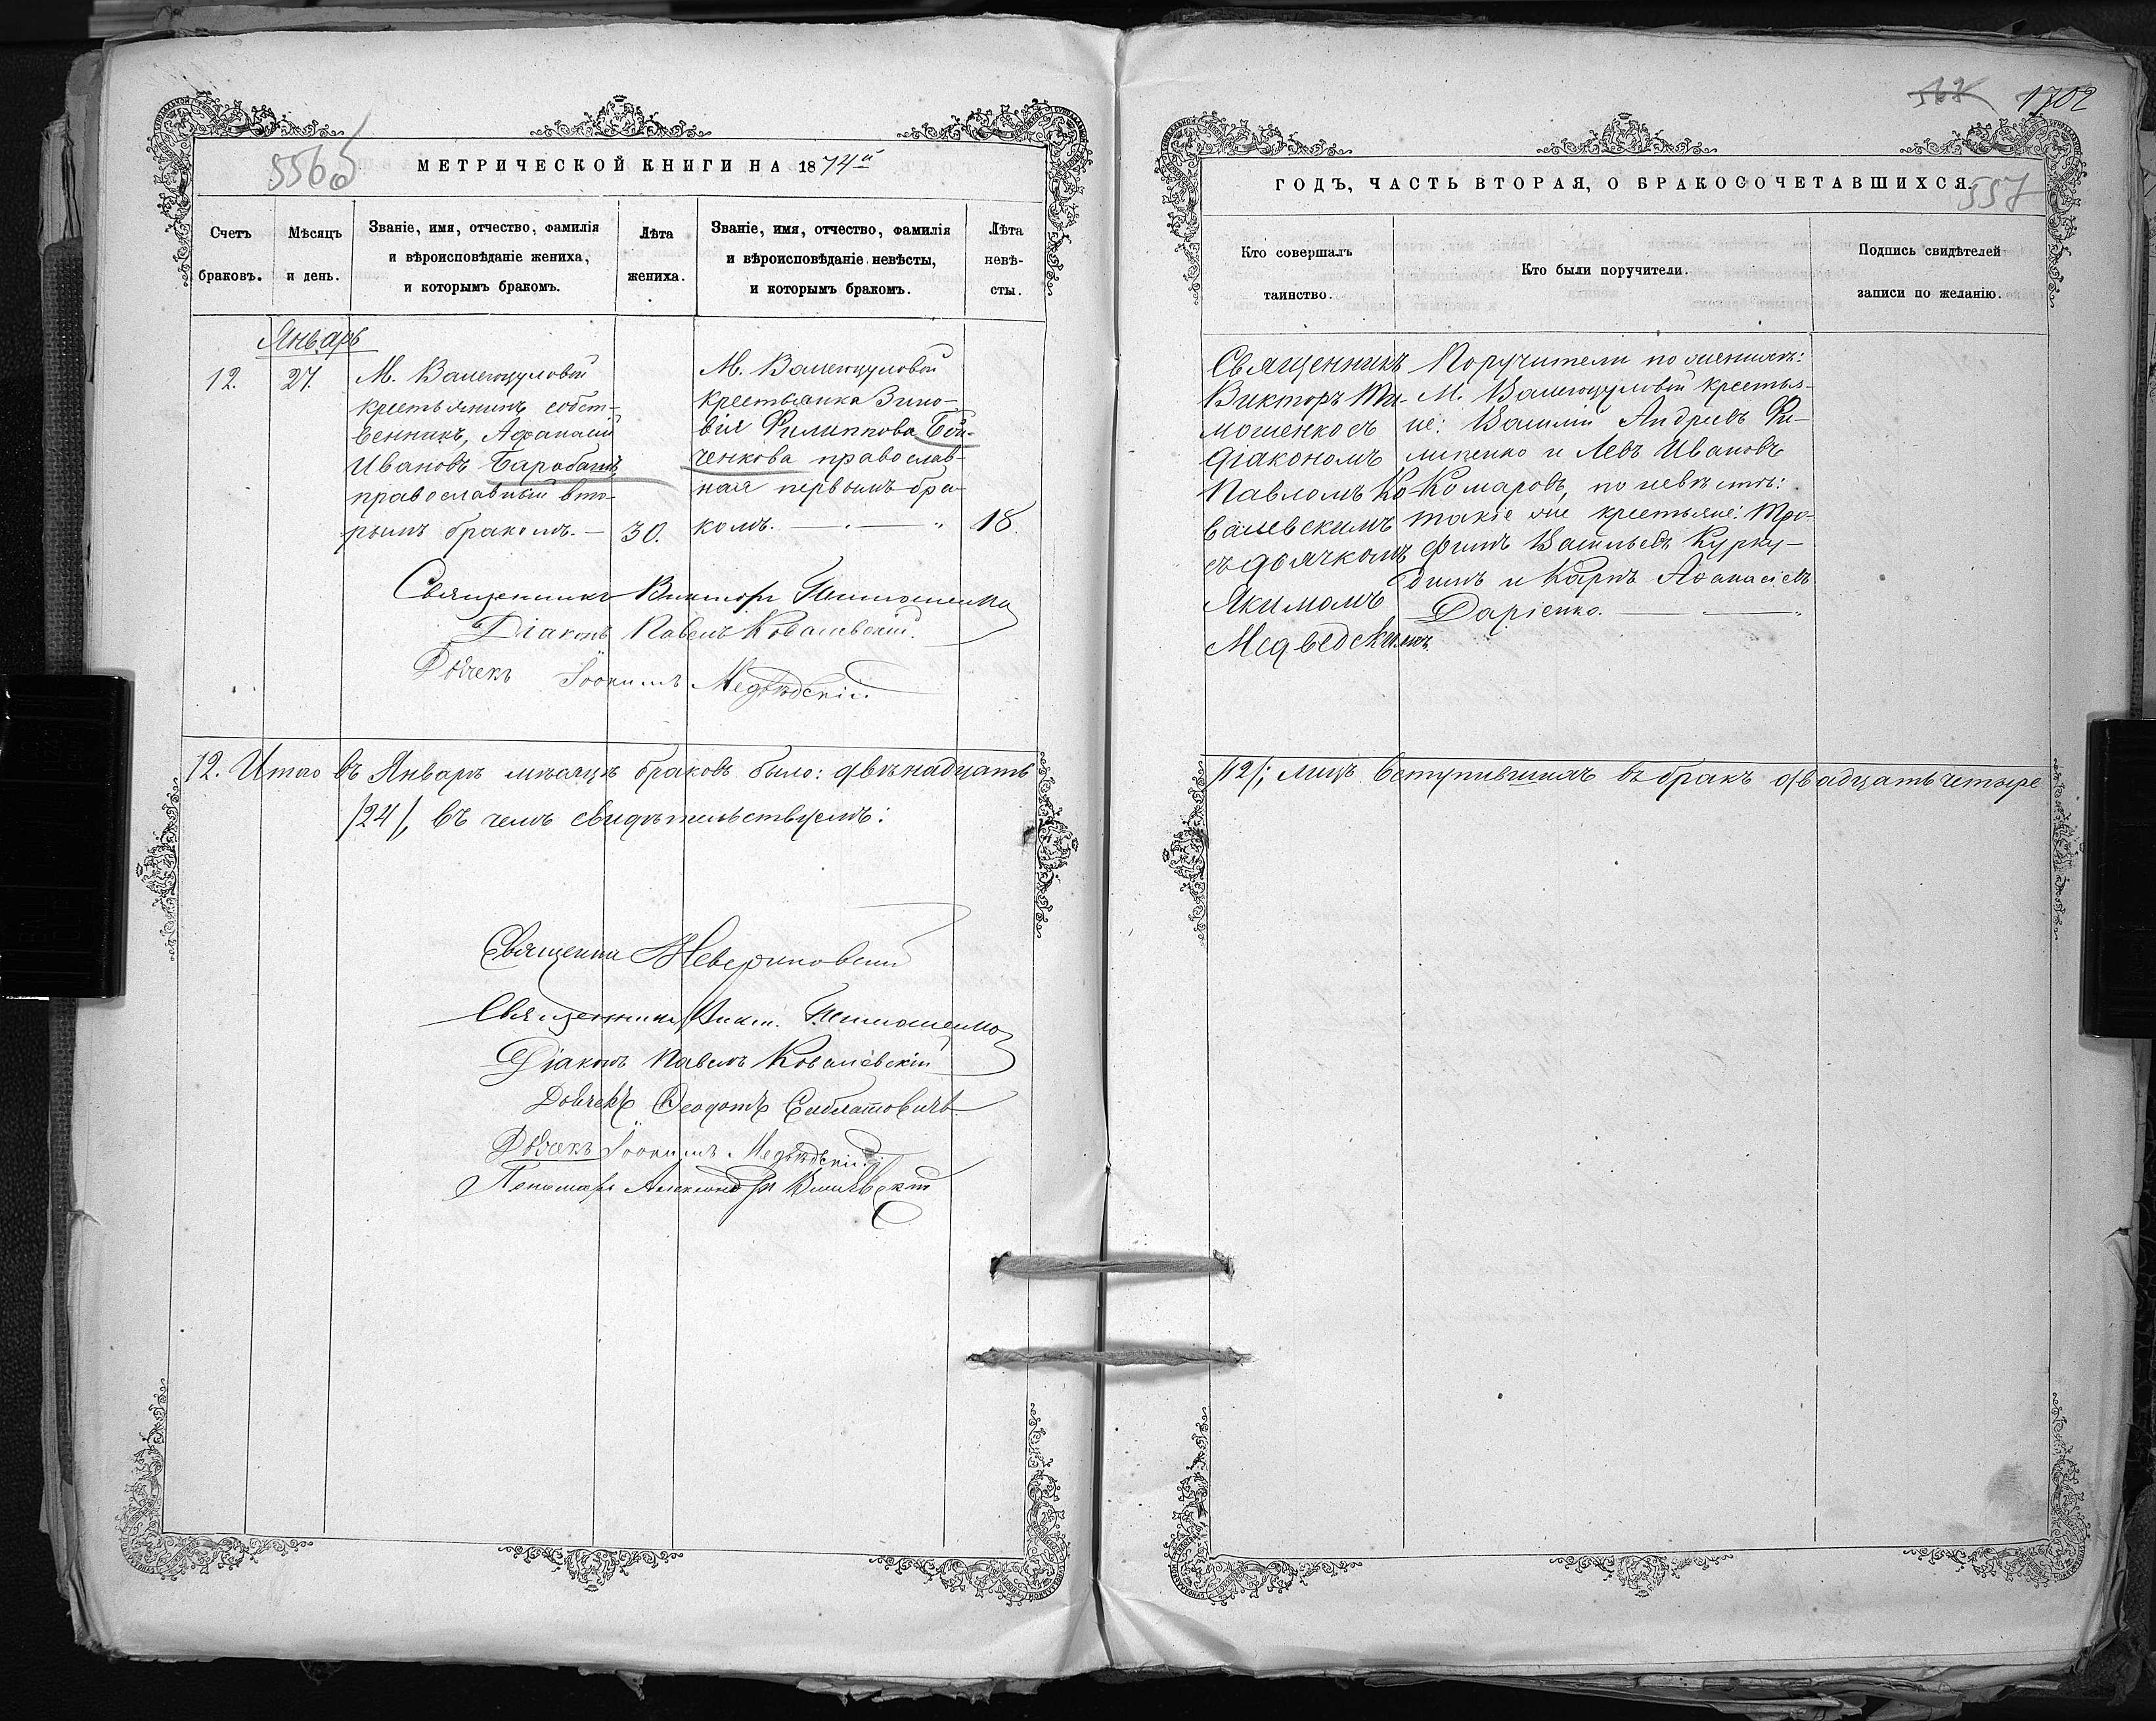 556
МЕТРИЧЕСКОЙ КНИГИ НА 1874й
Счетъ браковъ.
Мѣсяцъ и день.
Званіе, имя, отчество, фамилія
и вѣроисповѣданіе жениха,
и которымъ бракомъ.
Лѣта жениха.
Званіе, имя, отчество, фамилія
и вѣроисповѣданіе невѣсты,
и которымъ бракомъ.
Лѣта невѣ-
сты.
Январь
12.
27.
М. Валегоцуловой
крестьянинъ собст-
венникъ, Афанасій
Ивановъ Барабашъ
православный вто-
рымъ бракомъ. —
30.
М. Валегоцуловой
крестьянка Зино-
вія Филиппова Бой-
ченкова православ-
ная первымъ бра-
комъ. —
18.
Священникъ Викторъ Тимошенко
Діаконъ Павелъ Ковалевскій.
Дьячекъ Іоакимъ Медвѣдскій.
12. Итого въ Январѣ мѣсяцѣ браковъ было: двѣнадцать
/24/, въ чемъ свидѣтельствуемъ:
Священникъ
Священникъ Викт. Тимошенко
Діаконъ Павелъ Ковалевскій
Дьячекъ Ѳеодотъ
Дьячекъ Іоакимъ Медвѣдскій
Пономарь Александръ
1702
ГОДЪ, ЧАСТЬ ВТОРАЯ, О БРАКОСОЧЕТАВШИХСЯ.
557
Кто совершалъ
таинство.
Кто были поручители.
Подпись свидѣтелей
записи по желанію.
Священникъ
Викторъ Ти-
мошенко съ
діакономъ
Павломъ Ко-
валевскимъ
съ дьячкомъ
Якимомъ
Медведскимъ.
Поручители по женихѣ:
М. Валегоцуловой крестья-
не: Василій Андреевъ Фи-
липенко и Левъ Ивановъ
Комаровъ, по невѣстѣ:
такіе же крестьяне: Тро-
фимъ Васильевъ Курку-
динъ и Карпъ Афанасіевъ
Даріенко. —
/12/; лицъ вступившихъ въ бракъ двадцать четыре